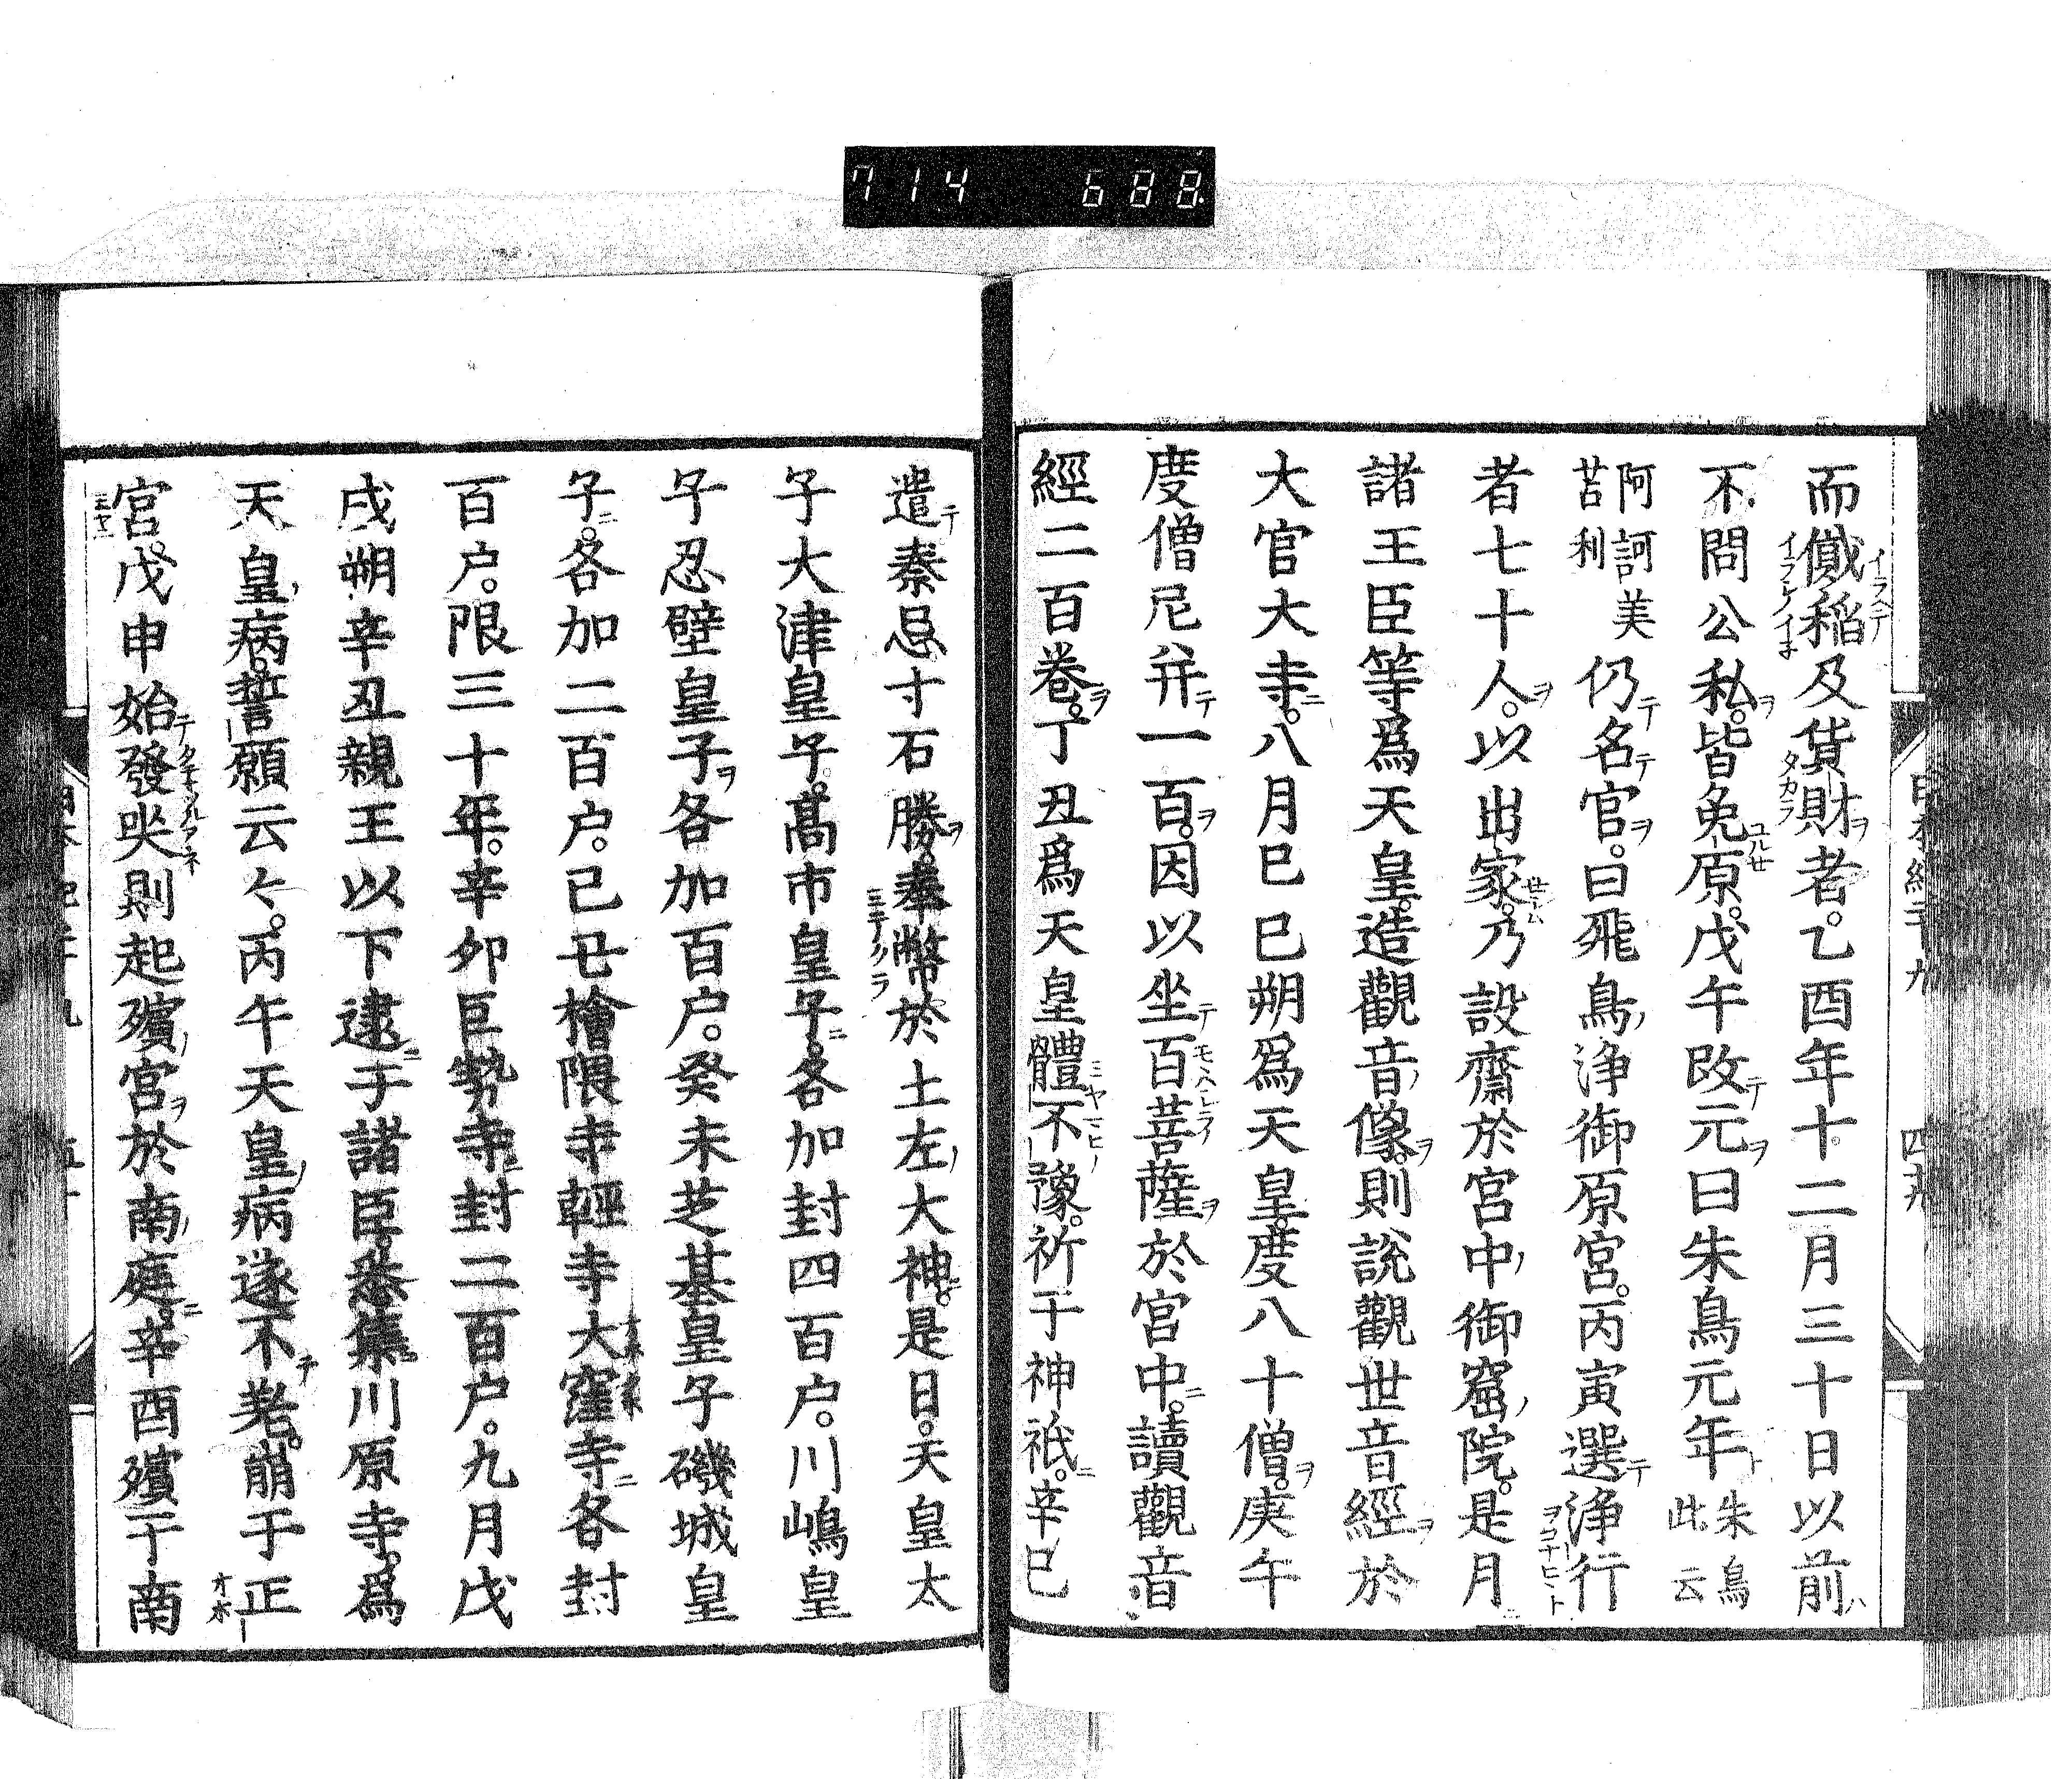 714 688
而儎稲及貨財者。乙酉年十二月三十日以前
不問公私。皆免原。戊午改元曰朱鳥元年 朱鳥此云
阿訶美苔利 仍名宮。曰飛鳥浄御原宮。丙寅選浄行
者七十人。以出家。乃設齋於宮中御窟院。是月
諸王臣等爲天皇。造觀音像。則説觀世音經於
大官大寺。八月己巳朔爲天皇。度八十僧。庚午
度僧尼并一百。因以坐百菩薩於宮中。讀觀音
經二百巻。丁丑爲天皇體不豫。祈于神祇。辛巳
遣秦忌寸石勝。奉幣於土左大神。是日。天皇太
子大津皇子。髙市皇子。各加封四百户。川嶋皇
子忍壁皇子各加百户。癸未芝基皇子磯城皇
子。各加二百户。己丑檜隈寺輕寺大窪寺各封
百户。限三十年。辛卯巨勢寺封二百户。九月戊
戌朔辛丑親王以下逮于諸臣。悉集川原寺。爲
天皇病。誓願云々。丙午天皇病遂不差。崩于正
宮。戊申始發哭則起殯宮於南庭。辛酉殯于南